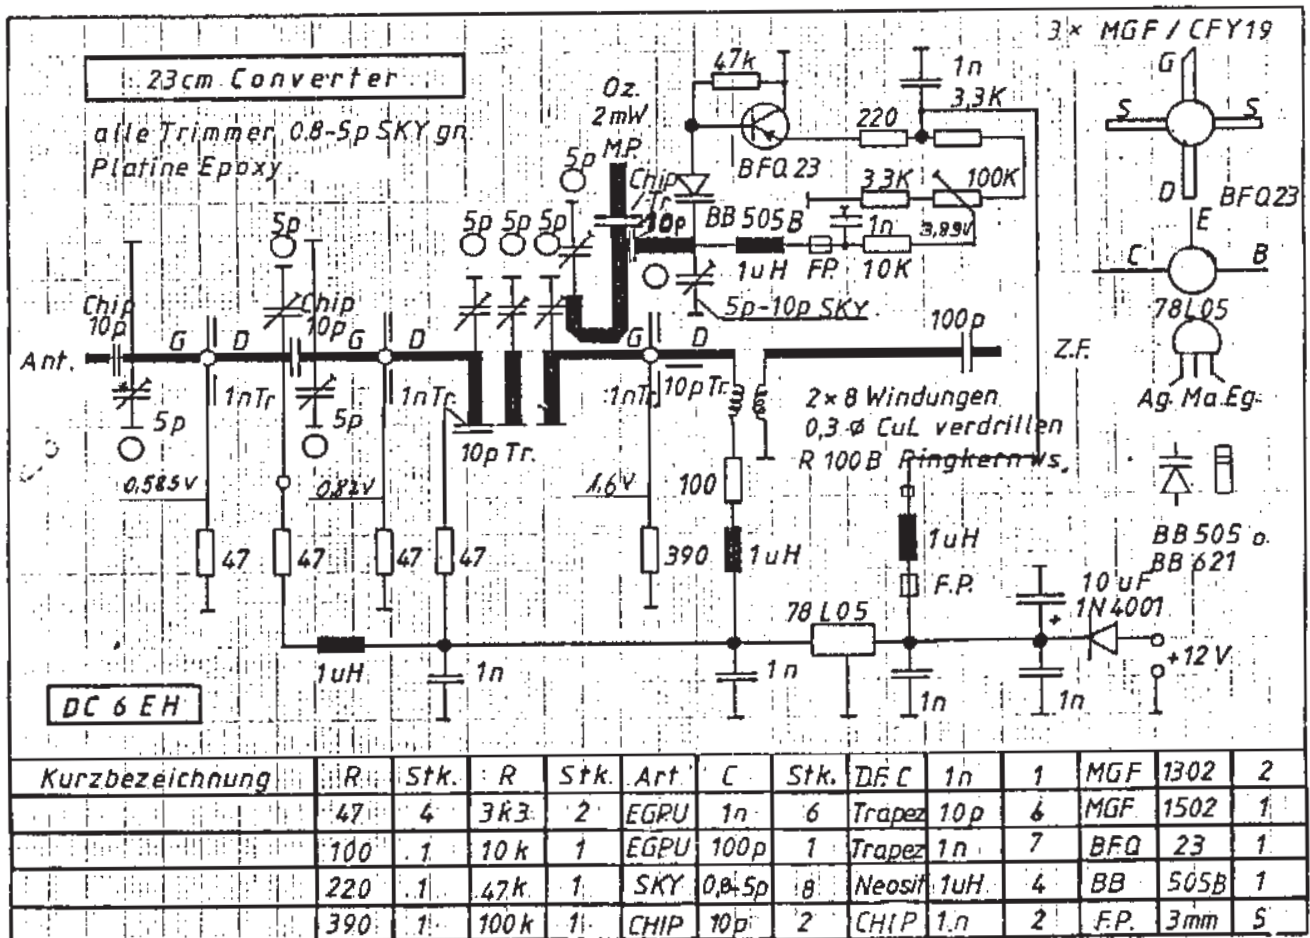 23cm Converter
alle Trimmer 0.8-5p SKY gn
Platine Epoxy
Oz.
2mW
M.P.
47k
1n
3,3K
3× MGF / CFY19
G
S
S
D
BFQ23
E
C
B
78L05
Ag. Ma. Eg.
BB 505 o.
BB 621
BFQ 23
220
3.3K
100K
3,99V
5p
5p
5p
5p
5p
Chip
Tr.
10p
BB 505B
1uH
F.P.
1n
10K
5p-10p SKY
100p
Z.F.
Chip
10p
Chip
10p
Ant.
G
D
G
D
G
D
1nTr.
1nTr.
1nTr.
10pTr.
10p Tr.
5p
5p
2×8 Windungen
0,3 ⌀ CuL verdrillen
R 100B Ringkern ws.
0,585V
0,82V
1.6V
47
47
47
47
390
100
1uH
1uH
F.P.
10uF
+
1N4001
78L05
+12V
1uH
1n
1n
1n
1n
DC 6 EH
Kurzbezeichnung R Stk. R Stk. Art C Stk. D.F.C 1n 1 MGF 1302 2
47 4 3k3 2 EGPU 1n 6 Trapez 10p 6 MGF 1502 1
100 1 10k 1 EGPU 100p 1 Trapez 1n 7 BFQ 23 1
220 1 47k 1 SKY 0,8-5p 8 Neosit 1uH 4 BB 505B 1
390 1 100k 1 CHIP 10p 2 CHIP 1n 2 F.P. 3mm 5